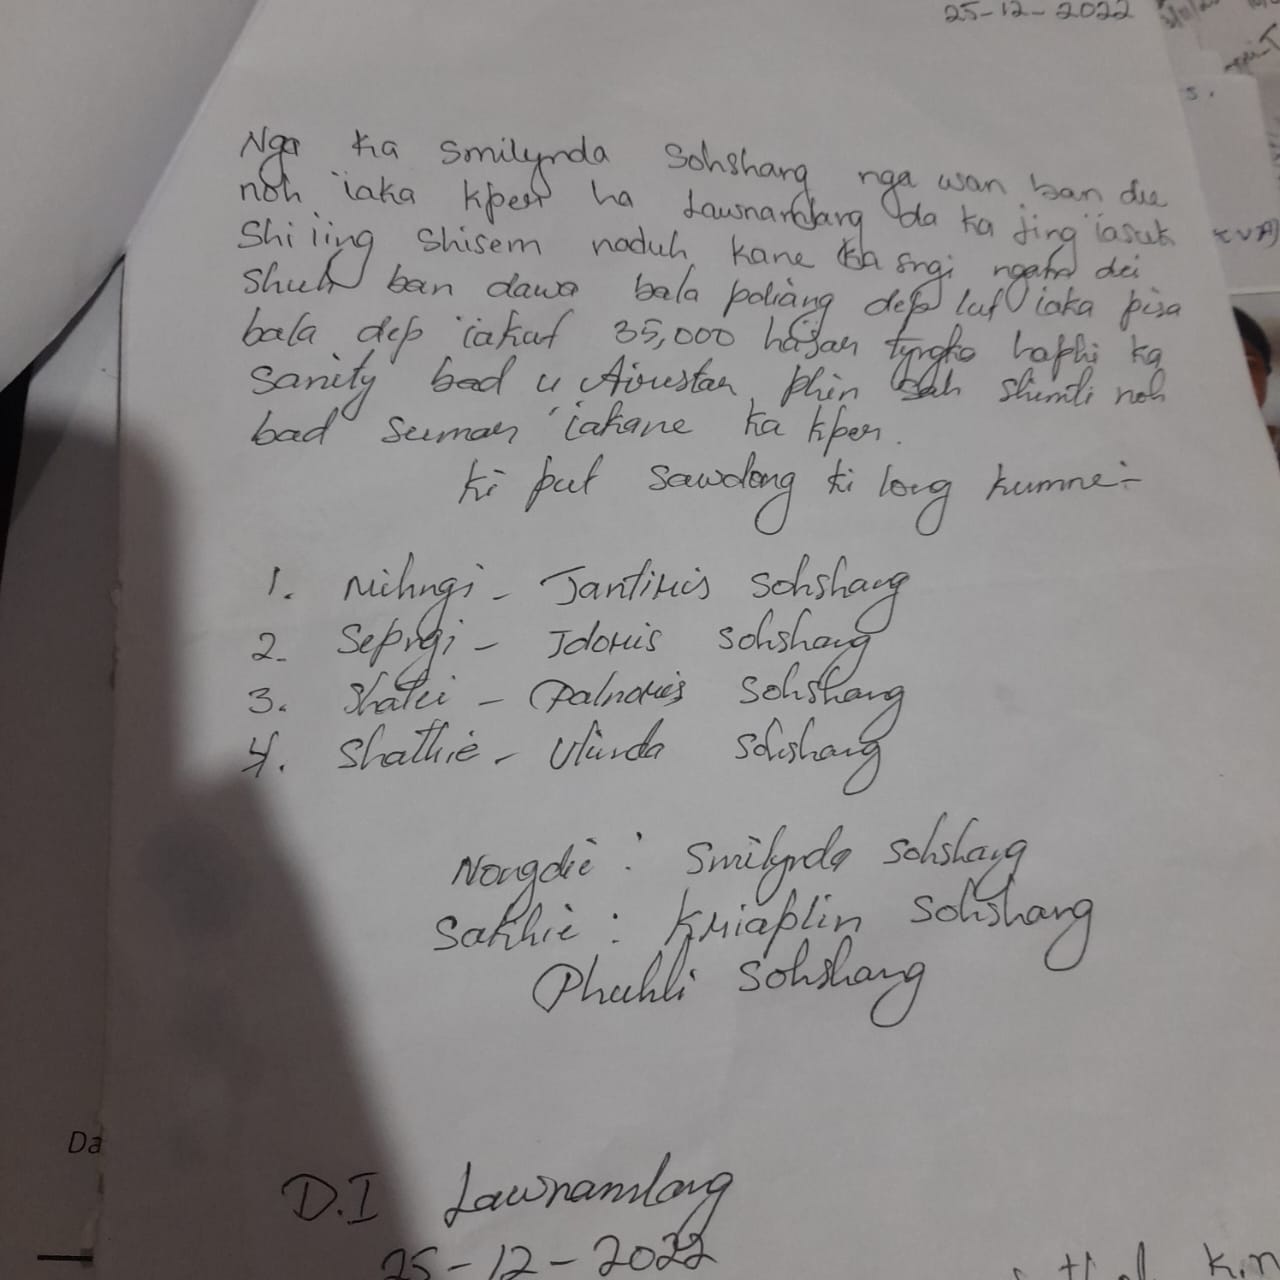 25-12-2022
Nga ka Smilynda Sohshang nga wan ban die
noh ïaka kper ha Lawnamlang da ka jing ïasuk
Shi iing shisem naduh kane ka sngi ngam dei
shuh ban dawa bala poliang dep lut ïaka pisa
bala dep ïakut 35,000 hajar tyngka haphi ka
Sanity bad u Airustar, phin sah shimti noh
bad sumar ïakane ka kper.
Ki put sawdong ki long kumne:-
1. Mihngi - Jantimis Sohshang
2. Sepngi - Idoris Sohshang
3. Shatei - Palnoris Sohshang
4. Shathie - Ulinda Sohshang
Nongdie : Smilynda Sohshang
Sakhie : Kmiaplin Sohshang
Phuhli Sohshang
D.I Lawnamlang
25-12-2022
Da